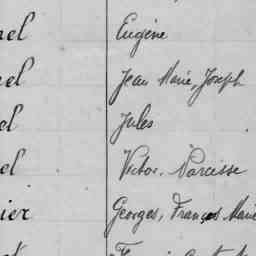 el Eugène
el Jean Marie, Joseph
el Jules
el Victor, Narcisse
ier Georges, François Marie